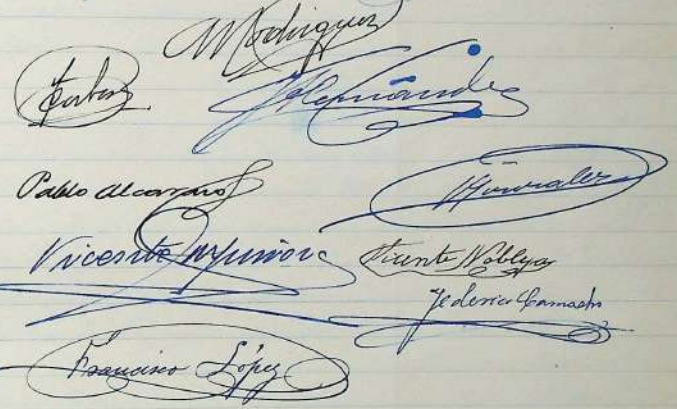 Rodriguez
Hernández
Pablo Alcaraz
González
Vicente
Vicente Nobleja
Federico Camacho
Francisco López